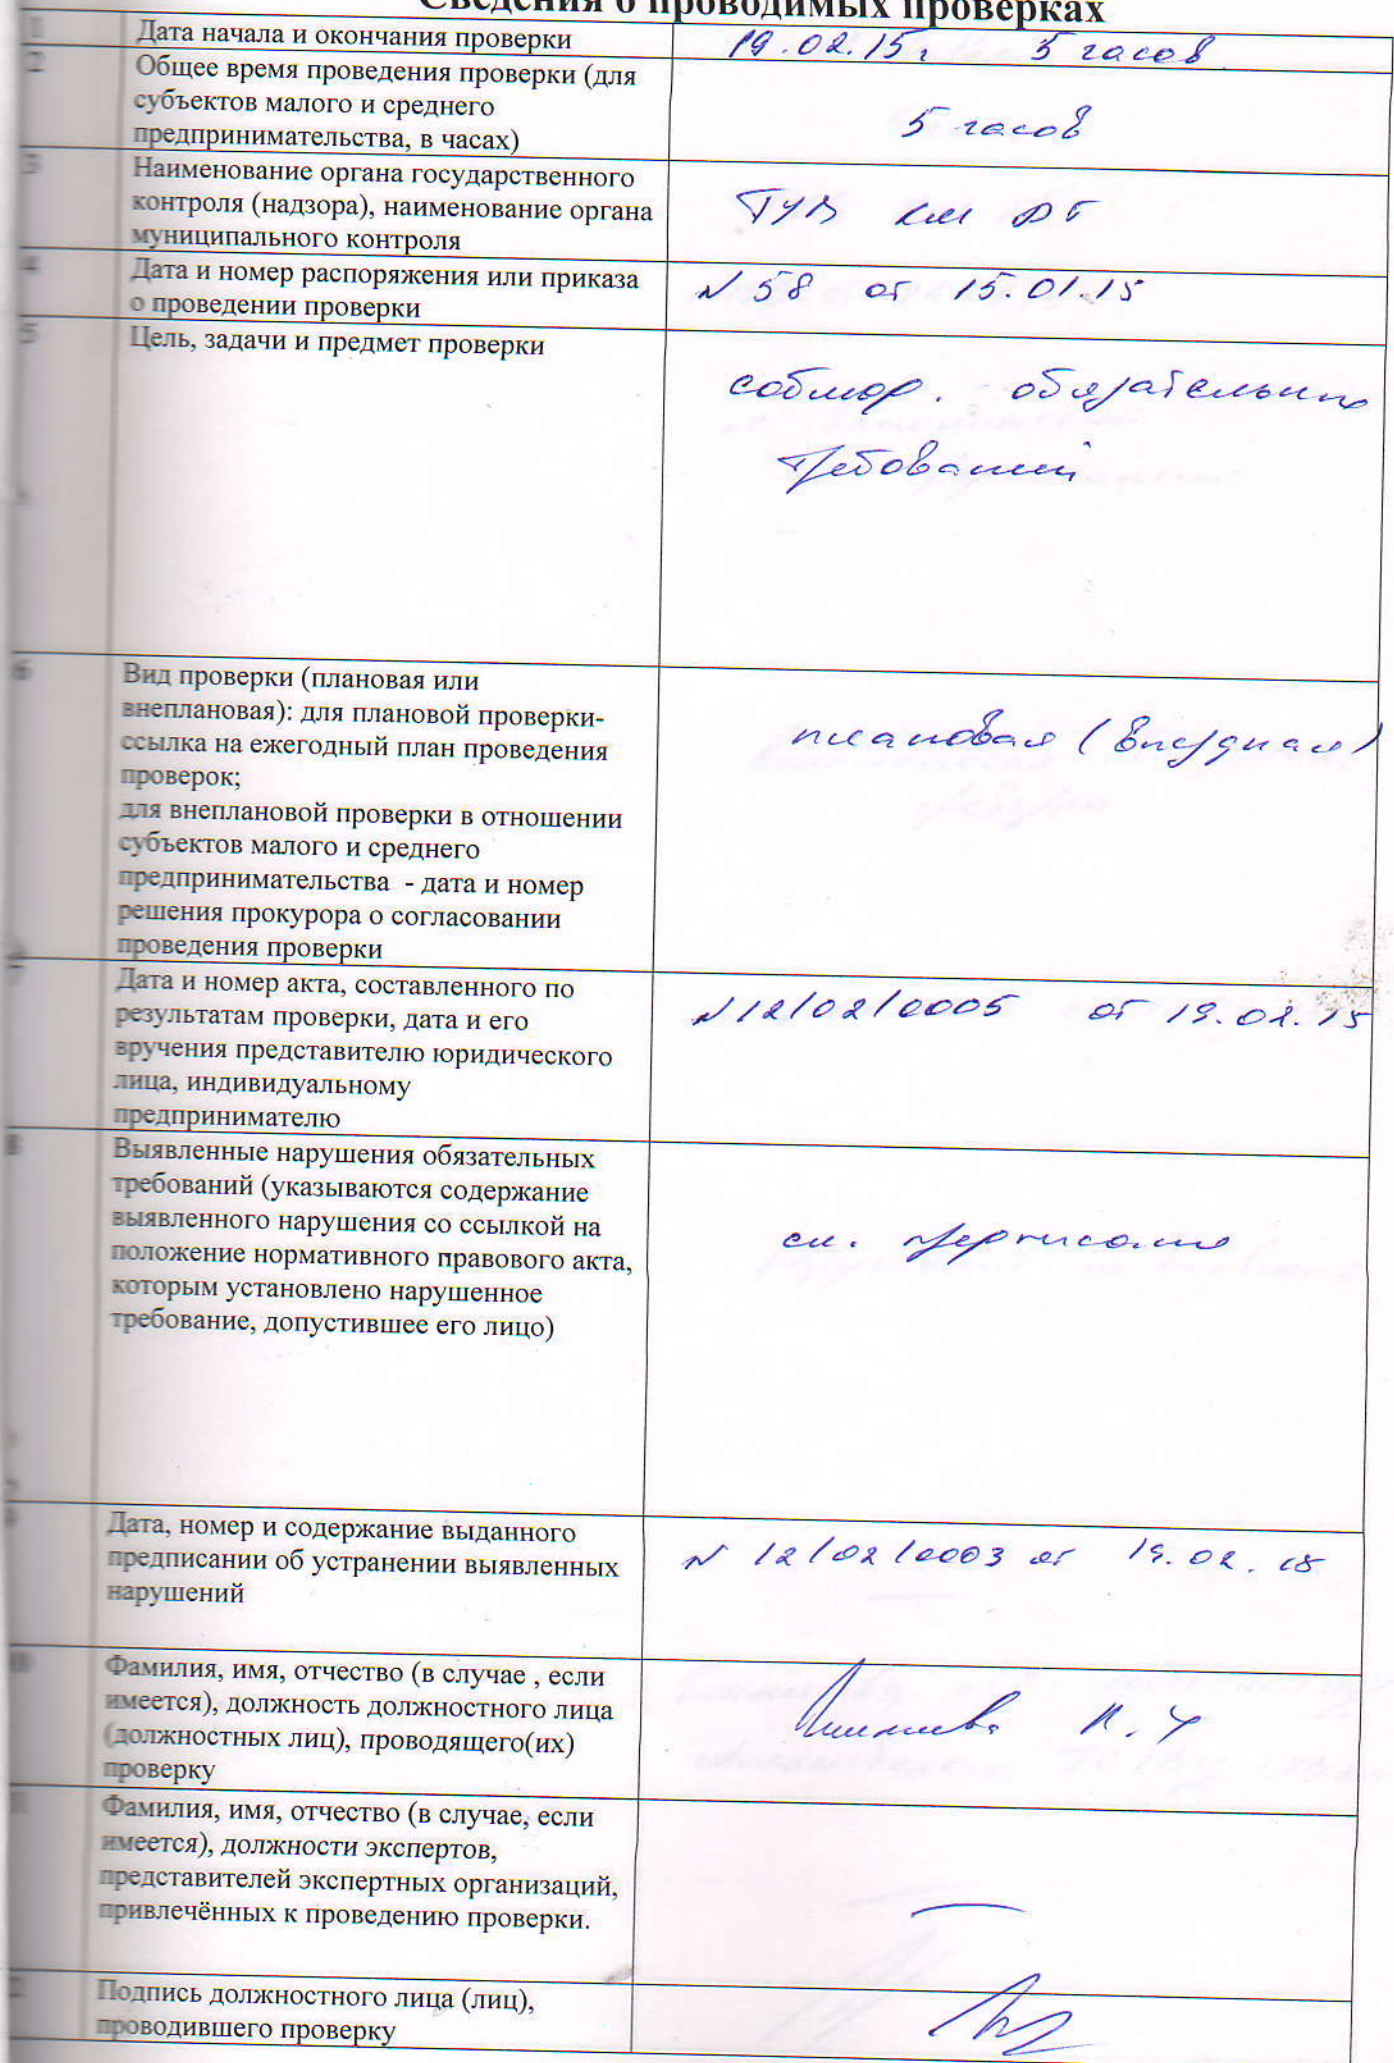 Сведения о проводимых проверках
1 Дата начала и окончания проверки 19.02.15г 5 часов
2 Общее время проведения проверки (для
субъектов малого и среднего
предпринимательства, в часах)
5 часов
3 Наименование органа государственного
контроля (надзора), наименование органа
муниципального контроля
ГУВ КМ РТ
4 Дата и номер распоряжения или приказа
о проведении проверки
N 58 от 15.01.15
5 Цель, задачи и предмет проверки
соблюд. обязательных
требований
6 Вид проверки (плановая или
внеплановая): для плановой проверки-
ссылка на ежегодный план проведения
проверок;
для внеплановой проверки в отношении
субъектов малого и среднего
предпринимательства - дата и номер
решения прокурора о согласовании
проведения проверки
плановая (выездная)
7 Дата и номер акта, составленного по
результатам проверки, дата и его
вручения представителю юридического
лица, индивидуальному
предпринимателю
N12/02/0005 от 19.02.15
8 Выявленные нарушения обязательных
требований (указываются содержание
выявленного нарушения со ссылкой на
положение нормативного правового акта,
которым установлено нарушенное
требование, допустившее его лицо)
см. предписание
Дата, номер и содержание выданного
предписании об устранении выявленных
нарушений
N 12/02/0003 от 19.02.15
10 Фамилия, имя, отчество (в случае , если
имеется), должность должностного лица
(должностных лиц), проводящего(их)
проверку
Фамилия, имя, отчество (в случае, если
имеется), должности экспертов,
представителей экспертных организаций,
привлечённых к проведению проверки.
—
Подпись должностного лица (лиц),
проводившего проверку